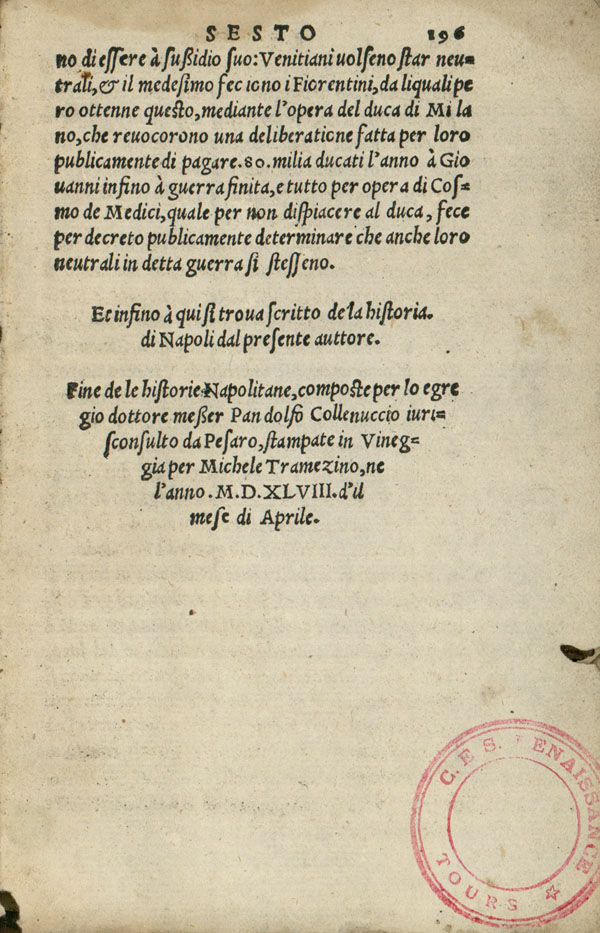 SESTO 196
no di essere à sußidio suo: Venitiani uolseno star neu=
trali, & il medesimo fecıono i Fiorentini, da liquali pe
ro ottenne questo, mediante l'opera del duca di Mi la
no, che reuocorono una deliberatione fatta per loro
publicamente di pagare .80. milia ducati l'anno à Gio
uanni infino à guerra finita, e tutto per opera di Cos=
mo de Medici, quale per non dispiacere al duca, fece
per decreto publicamente determinare che anche loro
neutrali in detta guerra si stesseno.
Et infino à qui si troua scritto de la historia.
di Napoli dal presente auttore.
Fine de le historie Napolitane, composte per lo egre
gio dottore meßer Pandolfo Collenuccio iuri=
sconsulto da Pesaro, stampate in Vineg=
gia per Michele Tramezino, ne
l'anno .M.D.XLVIII. d'il
mese di Aprile.
C.E.S. RENAISSANCE
TOURS